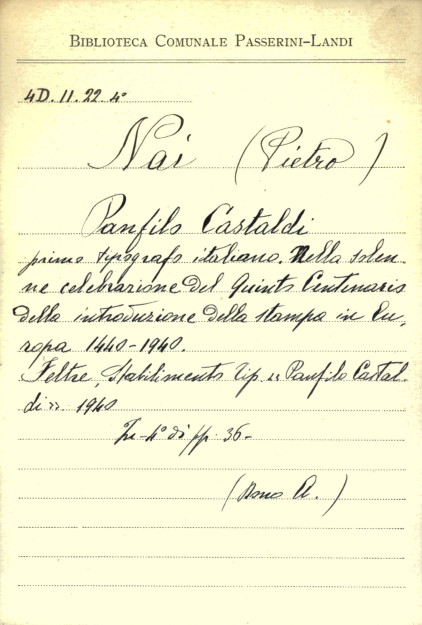 BIBLIOTECA COMUNALE PASSERINI-LANDI
4D. 11. 22. 4°
Nai (Pietro)
Panfilo Castaldi
primo tipografo italiano. Nella solen-
ne celebrazione del Quinto Centenario
della introduzione della stampa in Eu-
ropa 1440-1940.
Feltre, Stabilimento Tip. «Panfilo Castal-
di» 1940
In-4° di pp. 36-
(Dono A.)